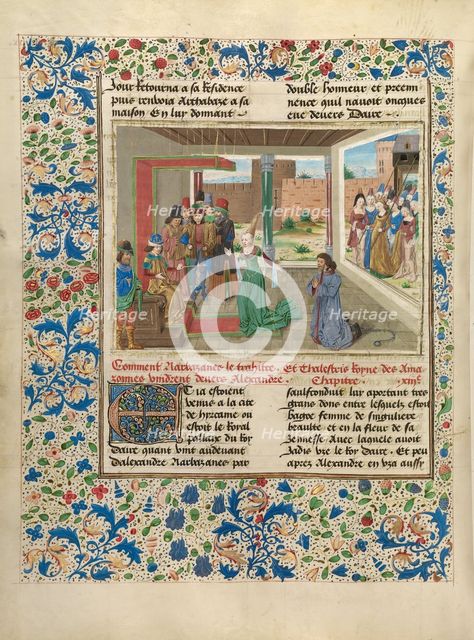 Jour retourna a sa residence
puis renvoia Arthabaze a sa
maison En luy donnant
double honneur et preemi
nence quil navoit oncques
eue devers Daire
Comment Narbazanes le trahitre. Et Thalestris Royne des Ama
zomes vindrent devers Alexandre. Chapitre. xiiie
Eia estoient
venus a la cite
de hyrcame ou
estoit le Royal
pallaix du Roy
Daire quant vint audevant
dalexandre Narbazanes par
saufconduit luy aportant tres
grans dons entre lesquelz estoit
bagoe femme de singuliere
beaulte et en la fleur de sa
Jennesse Avec laquele avoit
Jadis use le Roy Daire. Et peu
apres Alexandre en usa aussy
Heritage
Heritage
Heritage
Heritage
Heritage
Heritage